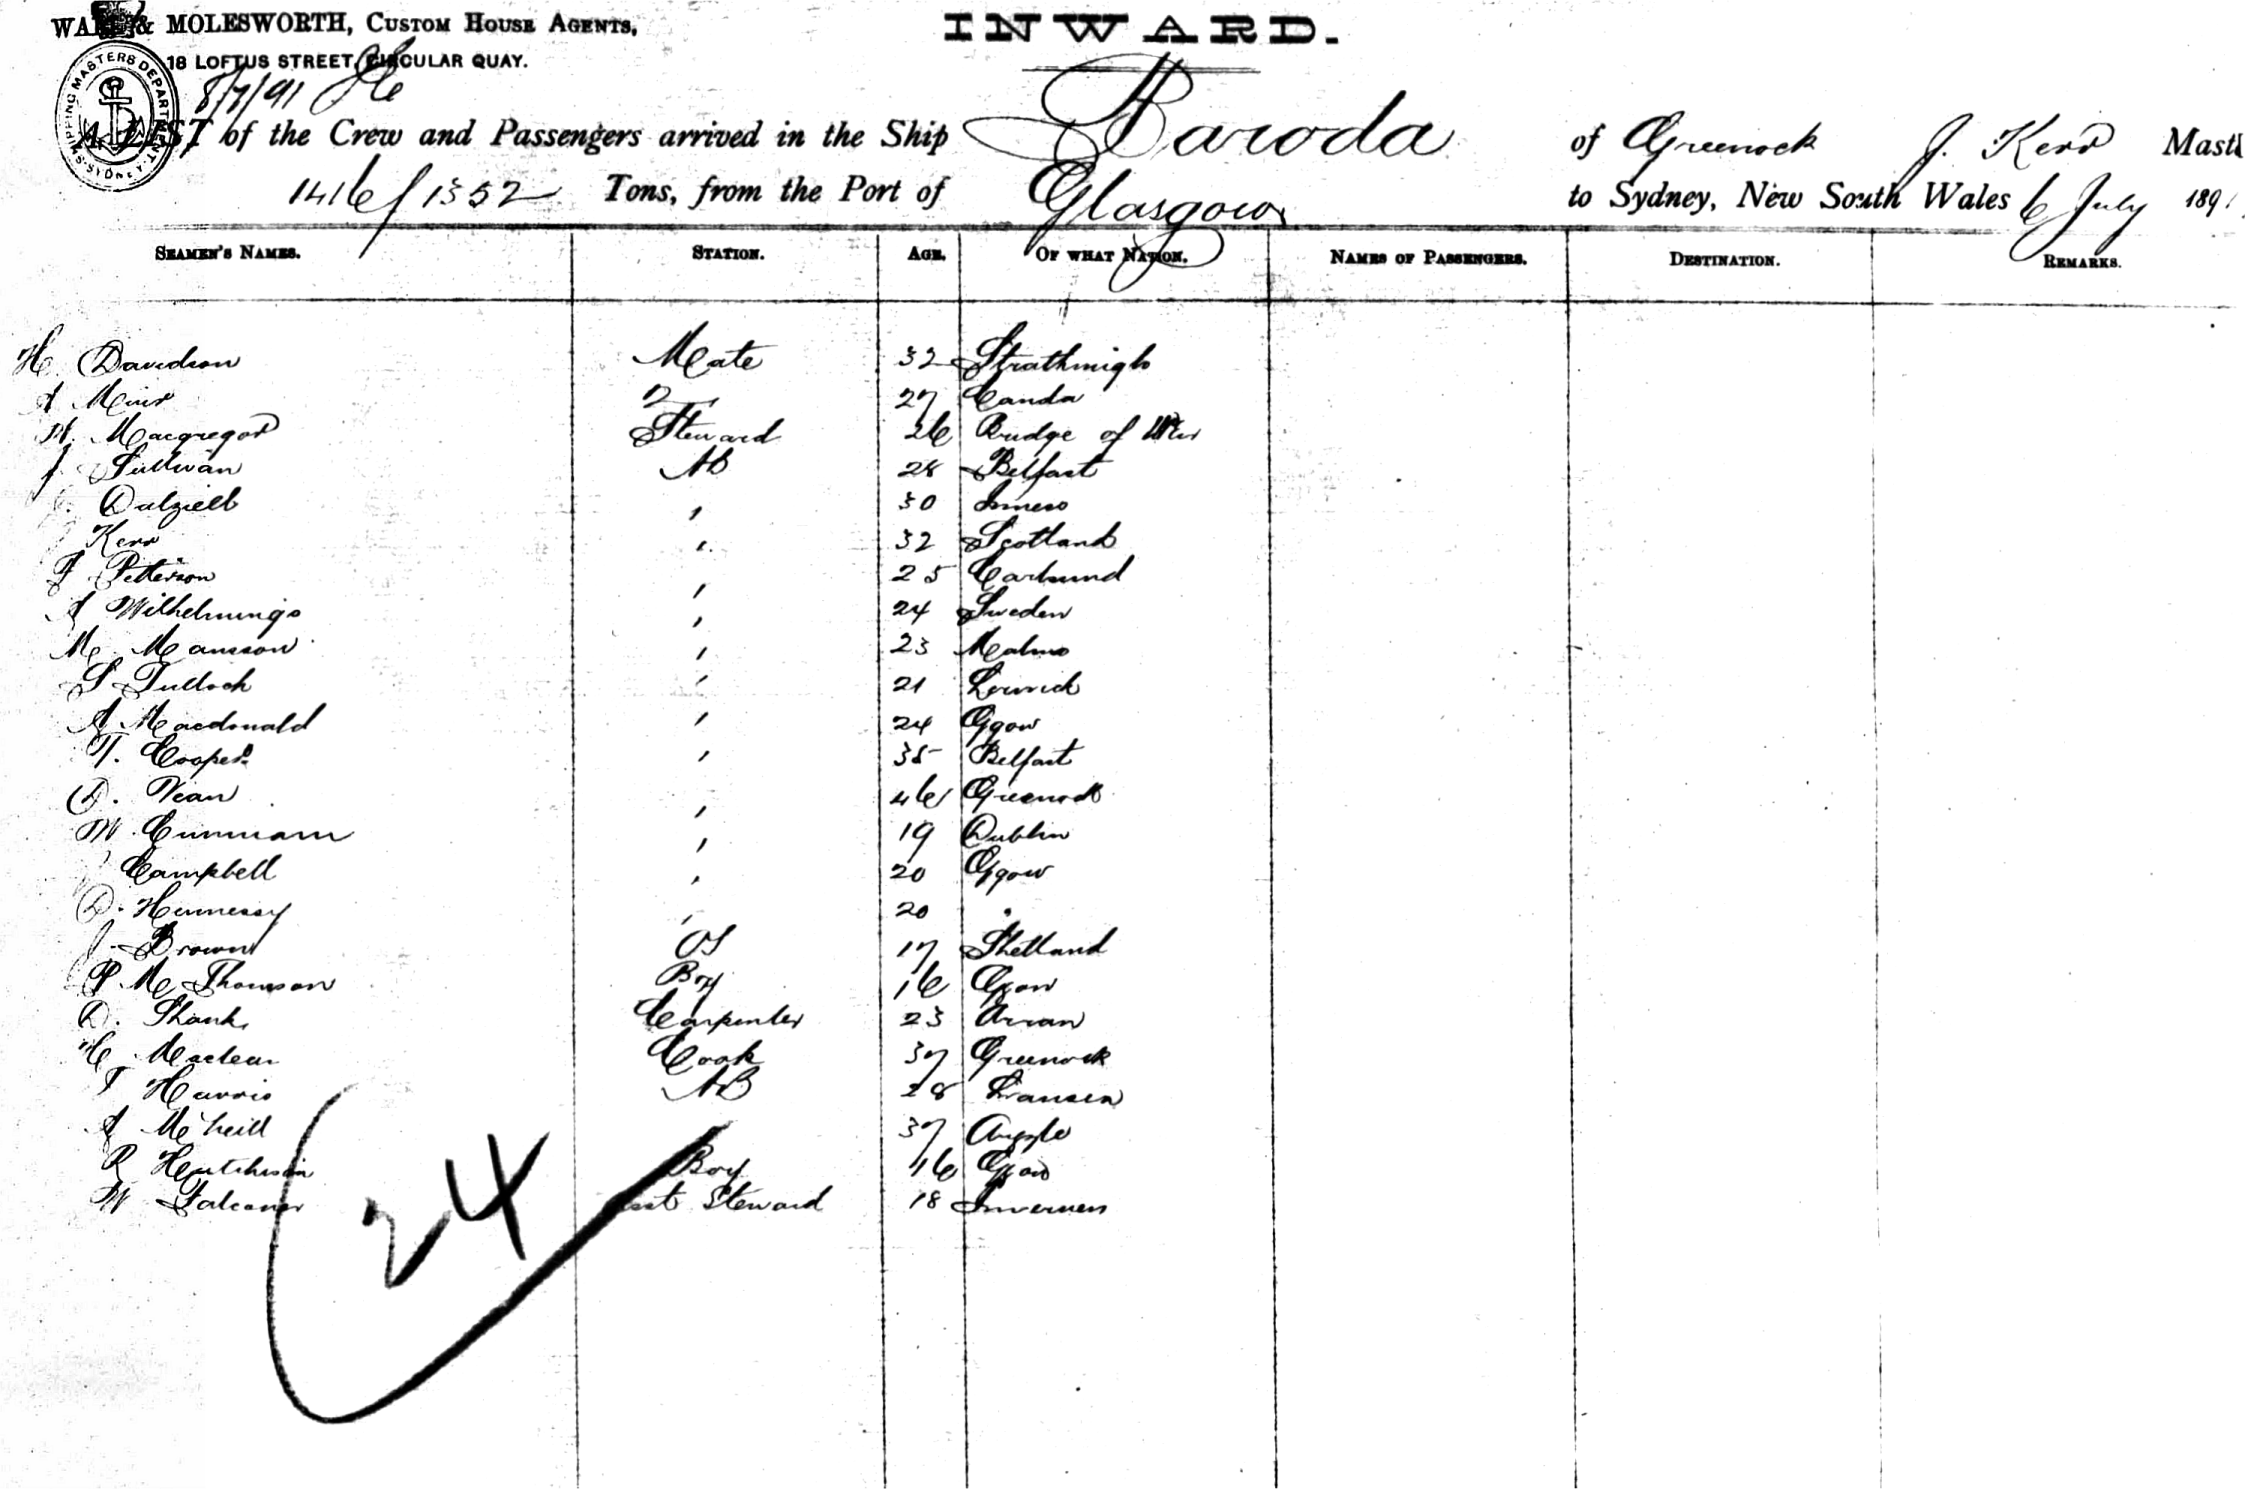 WA & MOLESWORTH, CUSTOM HOUSE AGENTS,
INWARD.
18 LOFTUS STREET, CIRCULAR QUAY.
SHIPPING MASTERS DEPARTMENT SYDNEY
8/7/91
A LIST of the Crew and Passengers arrived in the Ship Baroda of Greenock J. Kerr Mast
1416/1352 Tons, from the Port of Glasgow to Sydney, New South Wales 6 July 1891
SEAMEN'S NAMES. STATION. AGE. OF WHAT NATION. NAMES OF PASSENGERS. DESTINATION. REMARKS.
H. Davidson Mate 32 Strathmiglo
A Muir 2 27 Canda
Macgregor Steward 26 Bridge of Weir
J. Sullivan AB 28 Belfast
Dalziell , 30
Kerr , 32 Scotland
Petterson , 25
A Wilhelmings , 24 Sweden
M. Mansson , 23 Malmo
S Tulloch , 21 Lerwick
A Macdonald , 24 Ggow
T. Cooper , 35 Belfast
D. Vean , 46 Greenock
W. , 19 Dublin
Campbell , 20 Ggow
D. Hennessy , 20 "
J. Brown OS 17 Shetland
P. Mc Thomson Boy 16 Ggow
D. Shanks Carpenter 23 Arran
Maclean Cook 37 Greenock
T Harris AB 28
A McNeill 37 Argyle
R Hutchison Boy 16 Ggow
W Falconer Asst Steward 18 Inverness
24